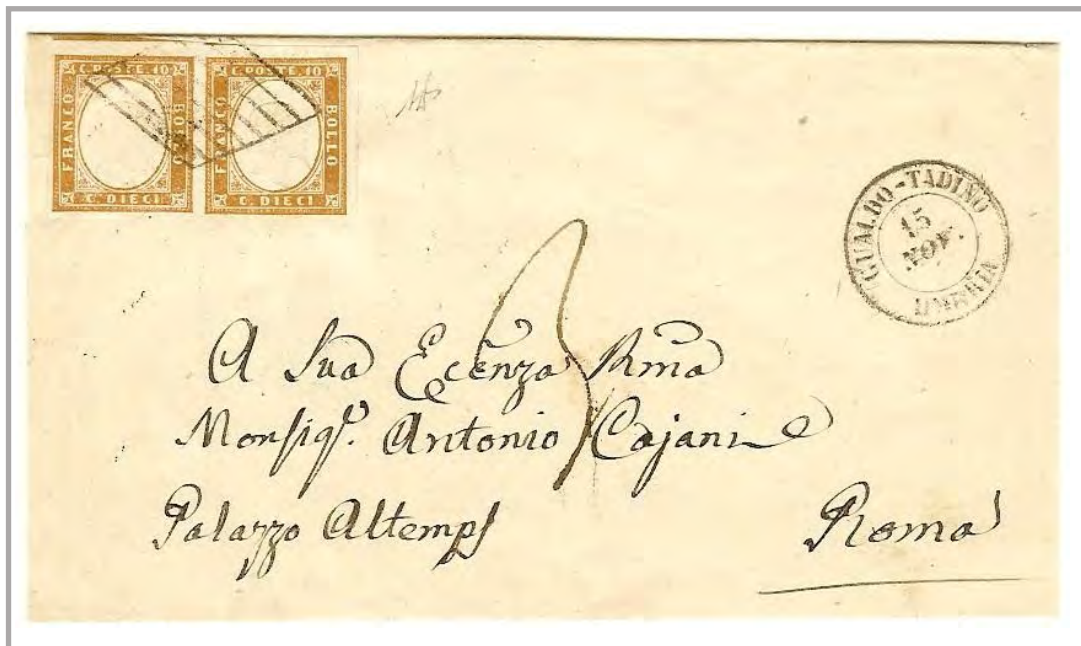 C. POSTE. 10
FRANCO
BOLLO
C. DIECI
C. POSTE. 10
FRANCO
BOLLO
C. DIECI
GUALDO-TADINO
15
NOV.
UMBRIA
3
A Sua Ecenza Rma
Monsigr. Antonio Cajani
Palazzo Altemps
Roma